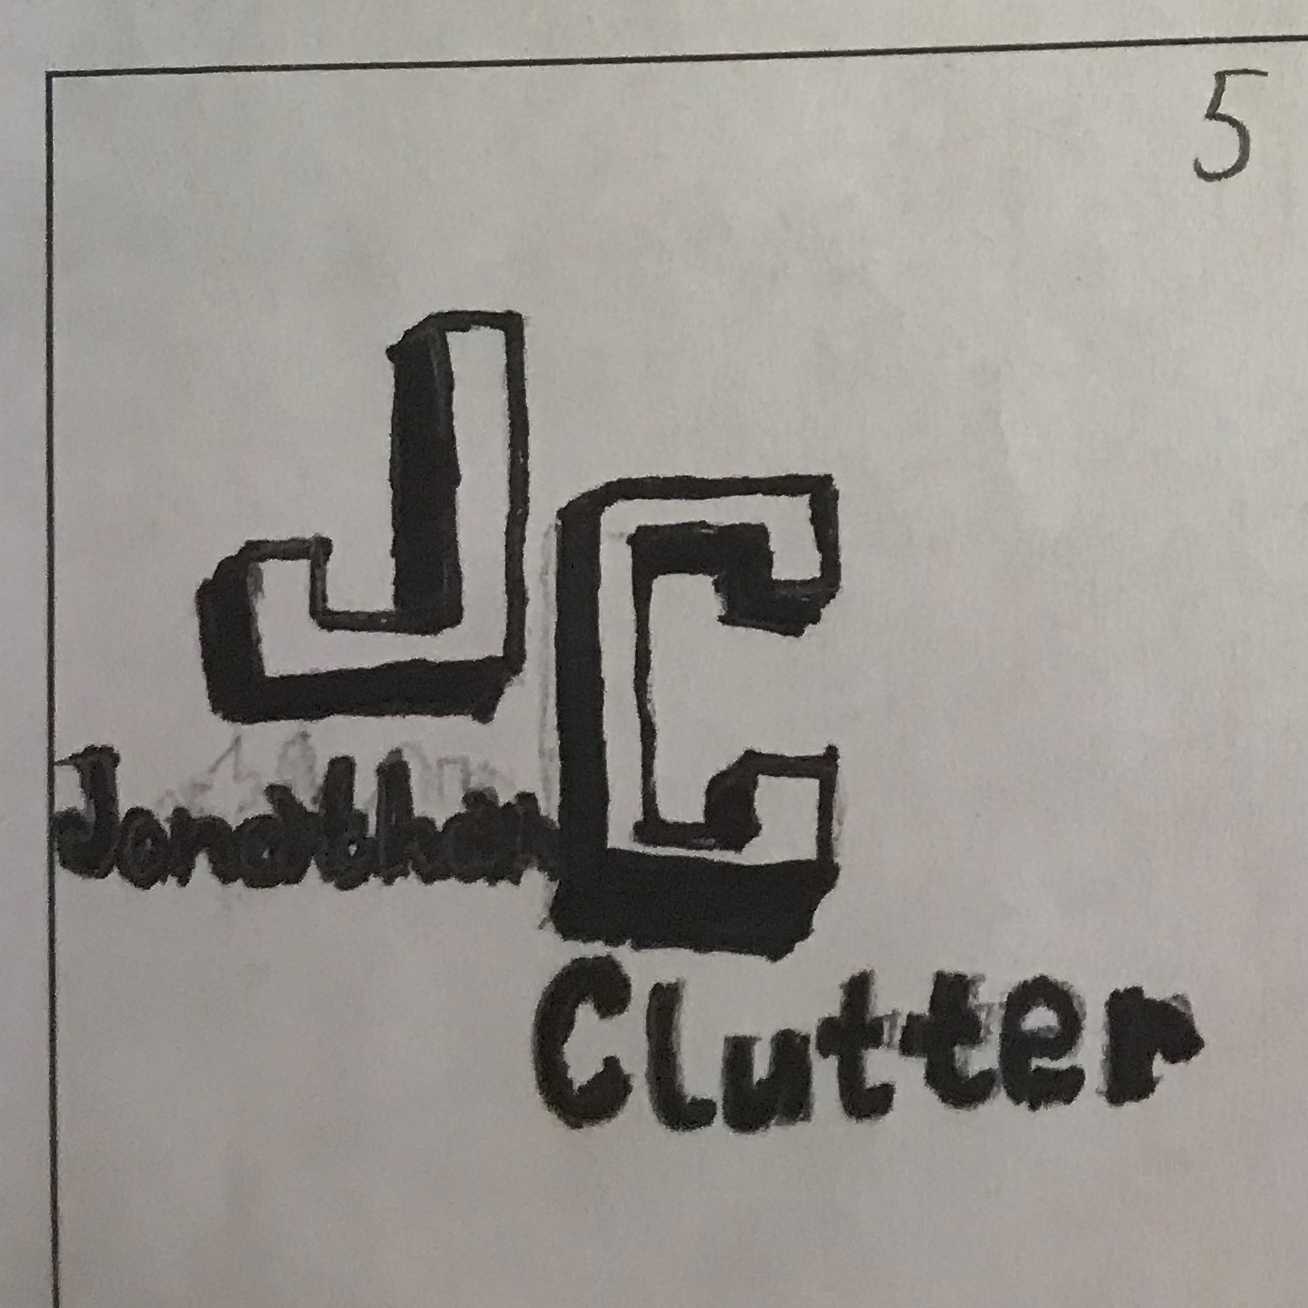 5
JC
Jonathan
Clutter